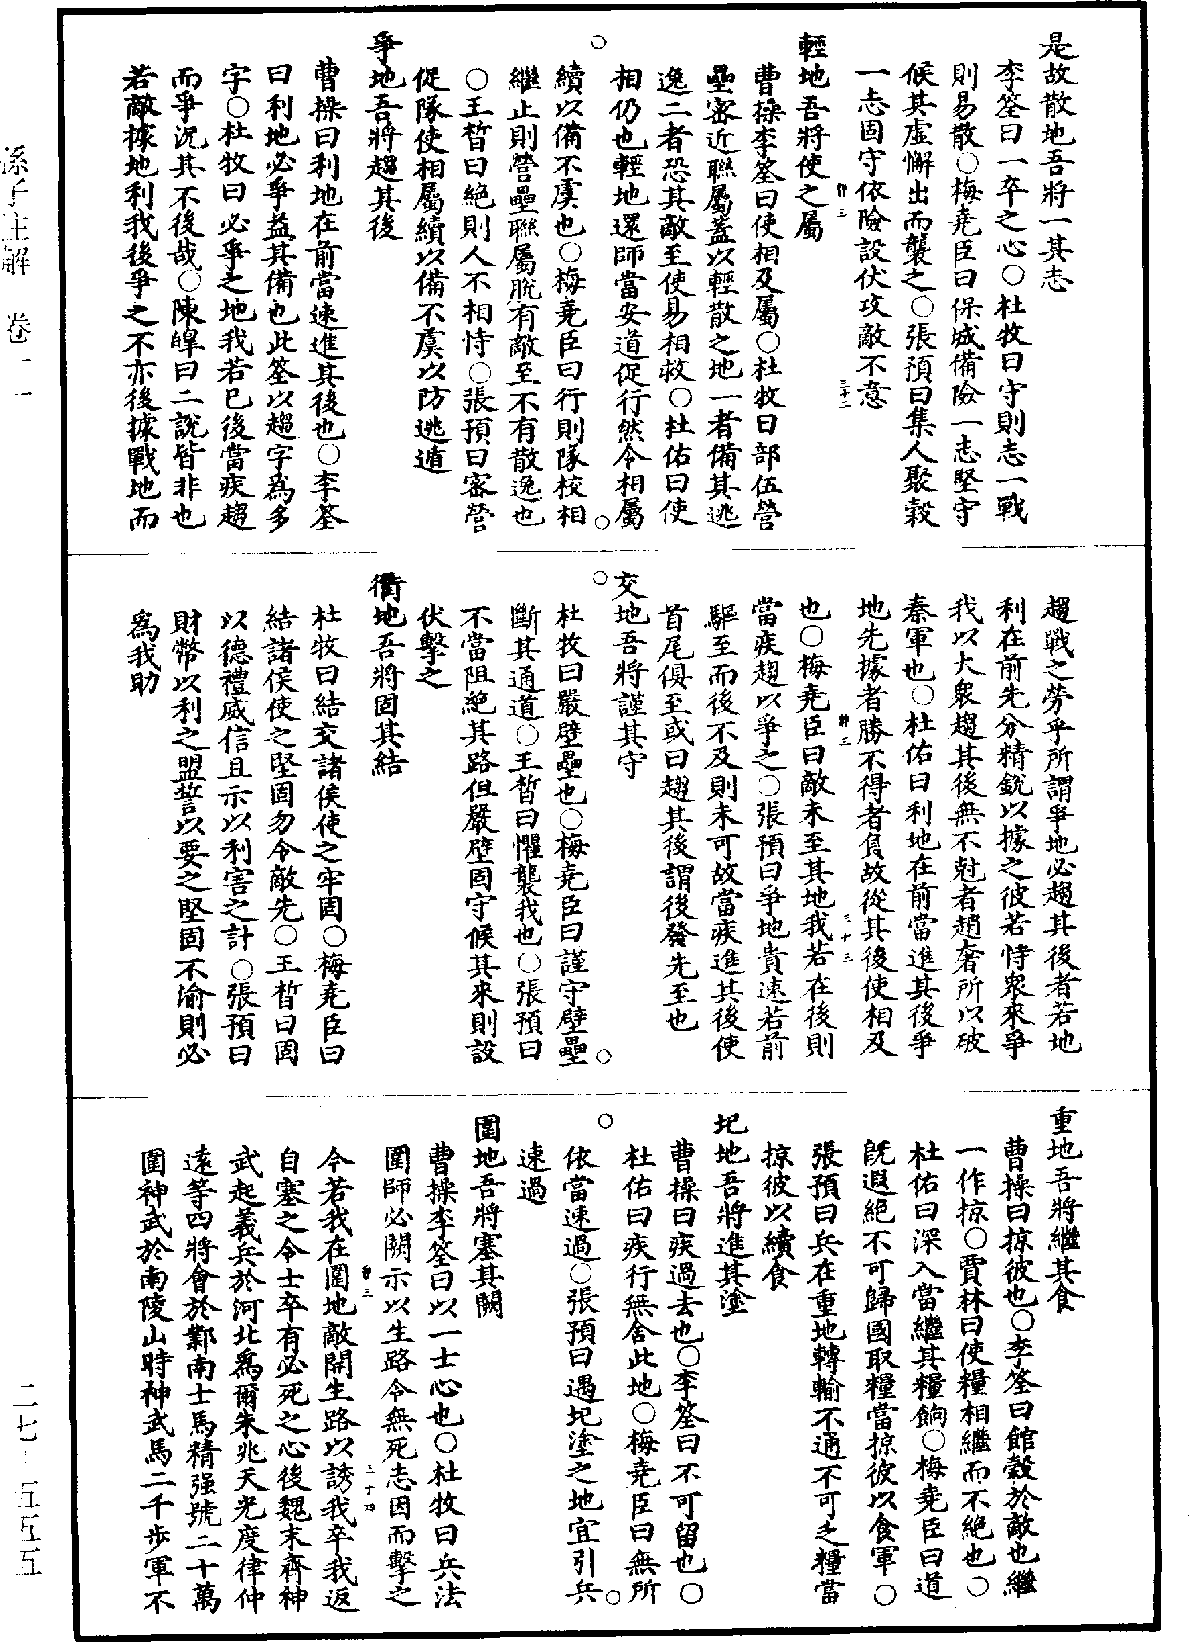 是故散地吾將一其志
李筌曰一卒之心○杜牧曰守則志一戰
則易散○梅堯臣曰保城備險一志堅守
候其虛懈出而襲之○張預曰集人聚穀
一志固守依險設伏攻敵不意
輕地吾將使之屬
曹操李筌曰使相及屬○杜牧曰部伍營
壘密近聯屬蓋以輕散之地一者備其逃
逸二者恐其敵至使易相救○杜佑曰使
相仍也輕地還師當安道促行然令相屬
續以備不虞也○梅堯臣曰行則隊校相
繼止則營壘聯屬脫有敵至不有散逸也
○王晳曰絕則人不相恃○張預曰密營
促隊使相屬續以備不虞以防逃遁
爭地吾將趨其後
曹操曰利地在前當速進其後也○李筌
曰利地必爭益其備也此筌以趨字為多
字○杜牧曰必爭之地我若已後當疾趨
而爭況其不後哉○陳皡曰二說皆非也
若敵據地利我後爭之不亦後據戰地而
趨戰之勞乎所謂爭地必趨其後者若地
利在前先分精銳以據之彼若恃眾來爭
我以大衆趨其後無不尅者趙奢所以破
秦軍也○杜佑曰利地在前當進其後爭
地先據者勝不得者負故從其後使相及
也○梅堯臣曰敵未至其地我若在後則
當疾趨以爭之○張預曰爭地貴速若前
驅至而後不及則未可故當疾進其後使
首尾俱至或曰趨其後謂後發先至也
交地吾將謹其守
杜牧曰嚴壁壘也○梅堯臣曰謹守壁壘
斷其通道○王晳曰懼襲我也○張預曰
不當阻絕其路但嚴壁固守候其來則設
伏擊之
衢地吾將固其結
杜牧曰結交諸侯使之牢固○梅堯臣曰
結諸侯使之堅固勿令敵先○王晳曰固
以德禮威信且示以利害之計○張預曰
財幣以利之盟誓以要之堅固不渝則必
為我助
重地吾將繼其食
曹操曰掠彼也○李筌曰館穀於敵也繼
一作掠○賈林曰使糧相繼而不絕也○
杜佑曰深入當繼其糧餉○梅堯臣曰道
旣遐絕不可歸國取糧當掠彼以食軍○
張預曰兵在重地轉輸不通不可乏糧當
掠彼以續食
圮地吾將進其塗
曹操曰疾過去也○李筌曰不可留也○
杜佑曰疾行無舍此地○梅堯臣曰無所
依當速過○張預曰遇圮塗之地宜引兵
速過
圍地吾將塞其闕
曹操李筌曰以一士心也○杜牧曰兵法
圍師必闕示以生路令無死志因而擊之
今若我在圍地敵開生路以誘我卒我返
自塞之令士卒有必死之心後魏末齊神
武起義兵於河北爲爾朱兆天光度律仲
遠等四將會於鄴南士馬精强號二十萬
圍神武於南陵山時神武馬二千步軍不
孫子注解 卷一一
二七-五五五